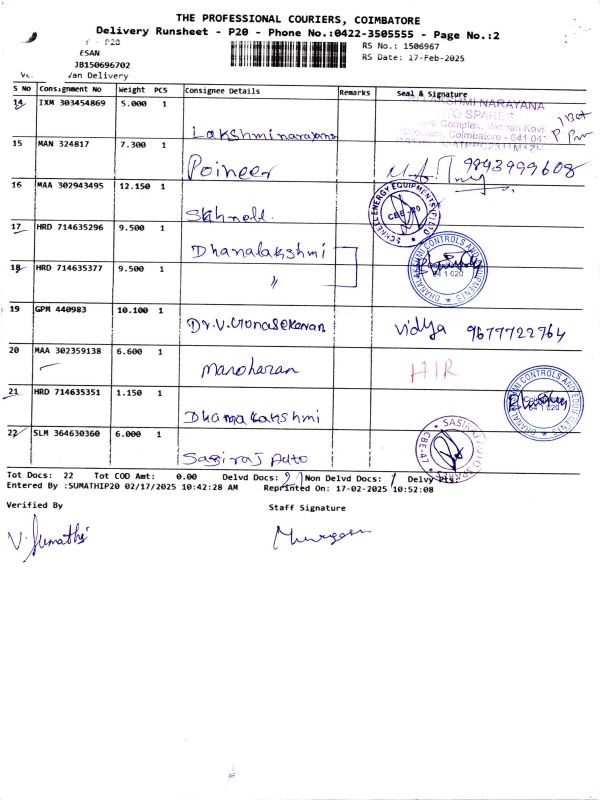 THE PROFESSIONAL COURIERS, COIMBATORE
Delivery Runsheet - P20 - Phone No.:0422-3505555 - Page No.:2
P20
ESAN
JB150696702
Van Delivery
RS No.: 1506967
RS Date: 17-Feb-2025
S No Consignment No Weight PCS Consignee Details Remarks Seal & Signature
14 IXM 303454869 5.000 1 Lakshminarayana
LAKSHMI NARAYANA
TO SPARES
Coimbatore - 641 04
15 MAN 324817 7.300 1 Poineer 9843999608
16 MAA 302943495 12.150 1
SCHNELL ENERGY EQUIPMENTS (P) LTD
CBE-20
17 HRD 714635296 9.500 1 Dhanalakshmi
18 HRD 714635377 9.500 1 〃
DHANALAKSHMI CONTROLS AND EQUIPMENTS
641 020
19 GPM 440983 10.100 1 Dr.V.Gunasekaran Vidya 9677722764
20 MAA 302359138 6.600 1 Manoharan HIR
21 HRD 714635351 1.150 1 Dhanalakshmi
DHANALAKSHMI CONTROLS AND EQUIPMENTS
641 020
22 SLM 364630360 6.000 1 Sasiraj Auto
SASIRAJ AUTO SPARES
CBE-47
Tot Docs: 22 Tot COD Amt: 0.00 Delvd Docs: 21 Non Delvd Docs: 1 Delvy Pts:
Entered By :SUMATHIP20 02/17/2025 10:42:28 AM Reprinted On: 17-02-2025 10:52:08
Verified By Staff Signature
V. Sumathi Murugesan